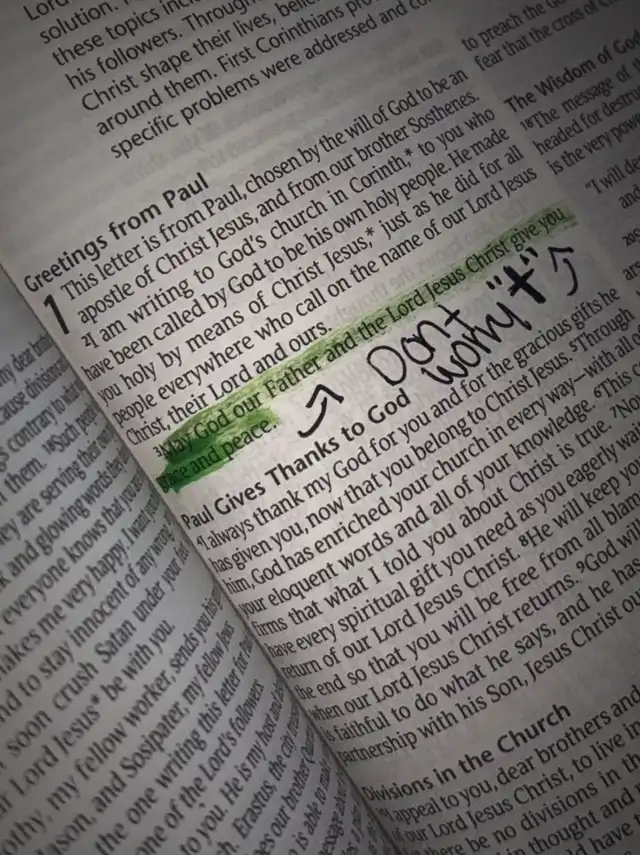 my dear
cause division
s contrary to
them. ¹⁸Such
ey are serving their
k and glowing words they
everyone knows that you
makes me very happy. I want
nd to stay innocent of any wrong.
soon crush Satan under your
r Lord Jesus* be with you.
othy, my fellow worker, sends you his
ason, and Sosipater, my fellow Jews
the one writing this letter for
one of the Lord's followers.
to you. He is my host and
h. Erastus, the city
does our brother
is able to make
message about
Lord
solution. To
these topics inc
his followers. Throu
Christ shape their lives, belie
around them. First Corinthians pro
specific problems were addressed and co
Greetings from Paul
1 This letter is from Paul, chosen by the will of God to be an
apostle of Christ Jesus, and from our brother Sosthenes.
²I am writing to God's church in Corinth,* to you who
have been called by God to be his own holy people. He made
you holy by means of Christ Jesus,* just as he did for all
people everywhere who call on the name of our Lord Jesus
Christ, their Lord and ours.
³May God our Father and the Lord Jesus Christ give you
grace and peace.
→ Don't
worry "✝" ↑
Paul Gives Thanks to God
⁴I always thank my God for you and for the gracious gifts he
has given you, now that you belong to Christ Jesus. ⁵Through
him, God has enriched your church in every way—with all of
your eloquent words and all of your knowledge. ⁶This co
firms that what I told you about Christ is true. ⁷Now
have every spiritual gift you need as you eagerly wai
return of our Lord Jesus Christ. ⁸He will keep you
the end so that you will be free from all blam
when our Lord Jesus Christ returns. ⁹God w
is faithful to do what he says, and he has
partnership with his Son, Jesus Christ o
Divisions in the Church
I appeal to you, dear brothers and
of our Lord Jesus Christ, to live in
there be no divisions in the
in thought and
ld have
to preach the Go
fear that the cross of C
The Wisdom of God
¹⁸The message of th
headed for destru
is the very power
"I will de
and